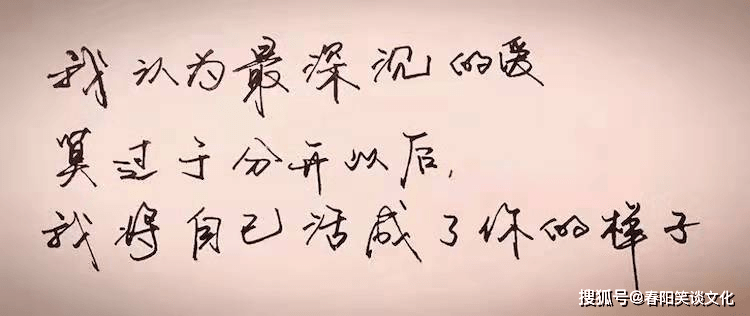 我认为最深沉的爱
莫过于分开以后,
我将自己活成了你的样子
搜狐号@春阳笑谈文化